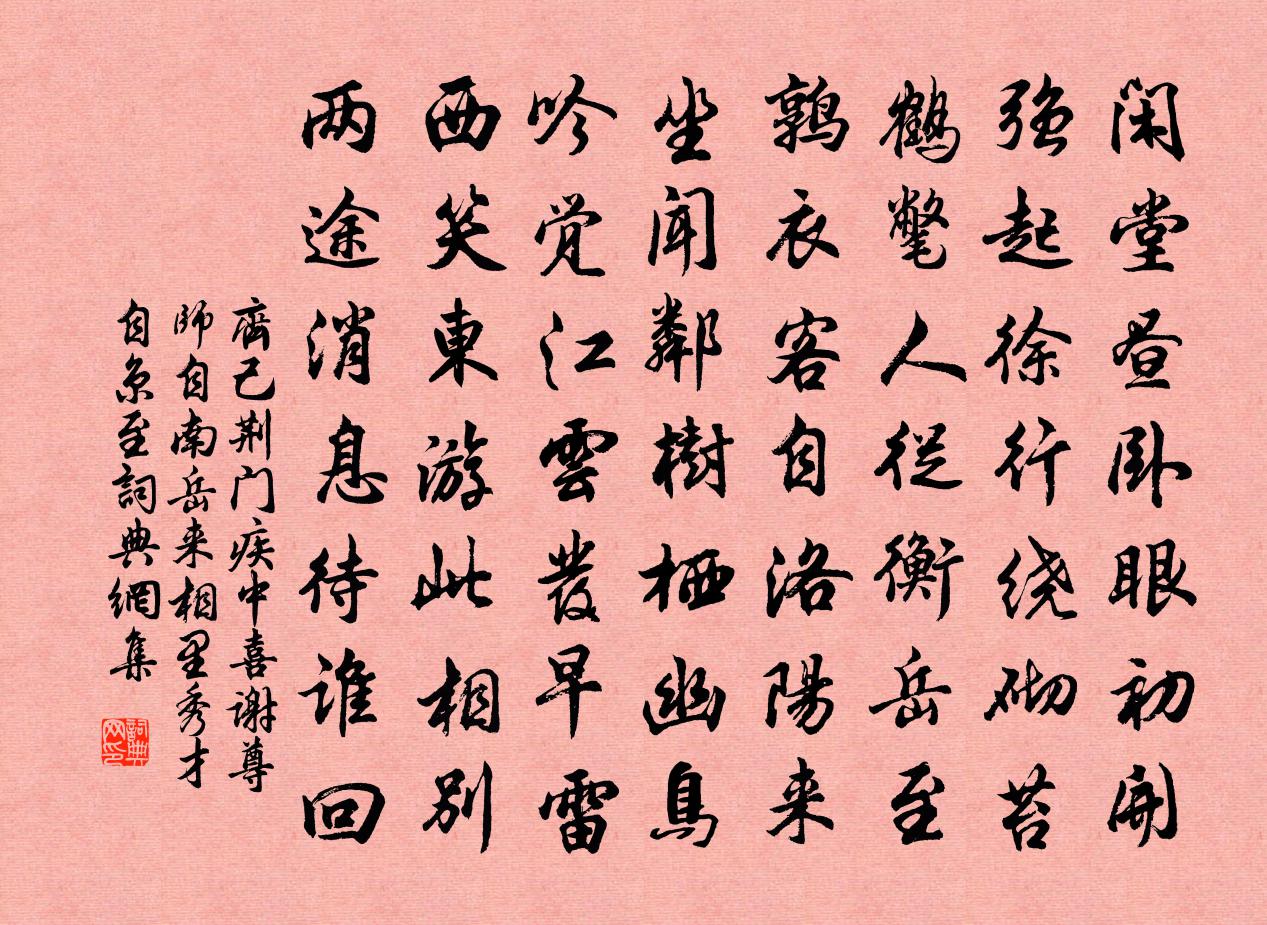 闲堂昼卧眼初开
强起徐行绕砌苔
鹤氅人从衡岳至
鹑衣客自洛阳来
坐闻邻树栖幽鸟
吟觉江云发早雷
西笑东游此相别
两途消息待谁回
齊己荆门疾中喜谢尊
師自南岳来相里秀才
自京至詞典網集
詞典
网印